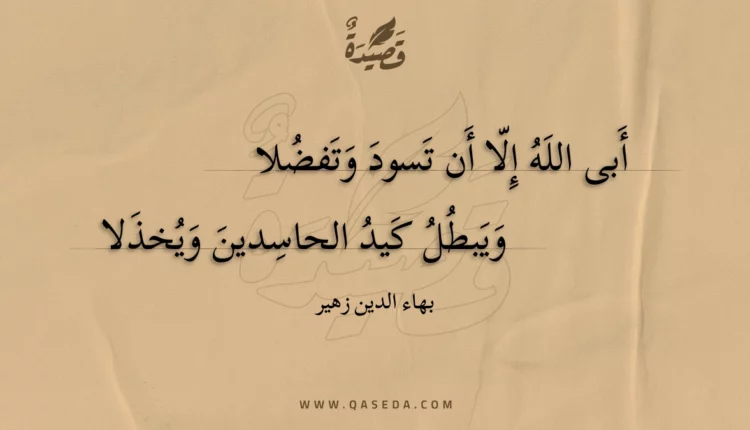 قَصِيدَةٌ
أَبى اللَهُ إِلّا أَن تَسودَ وَتَفضُلا
وَيَبطُلُ كَيدُ الحاسِدينَ وَيُخذَلا
بهاء الدين زهير
WWW.QASEDA.COM